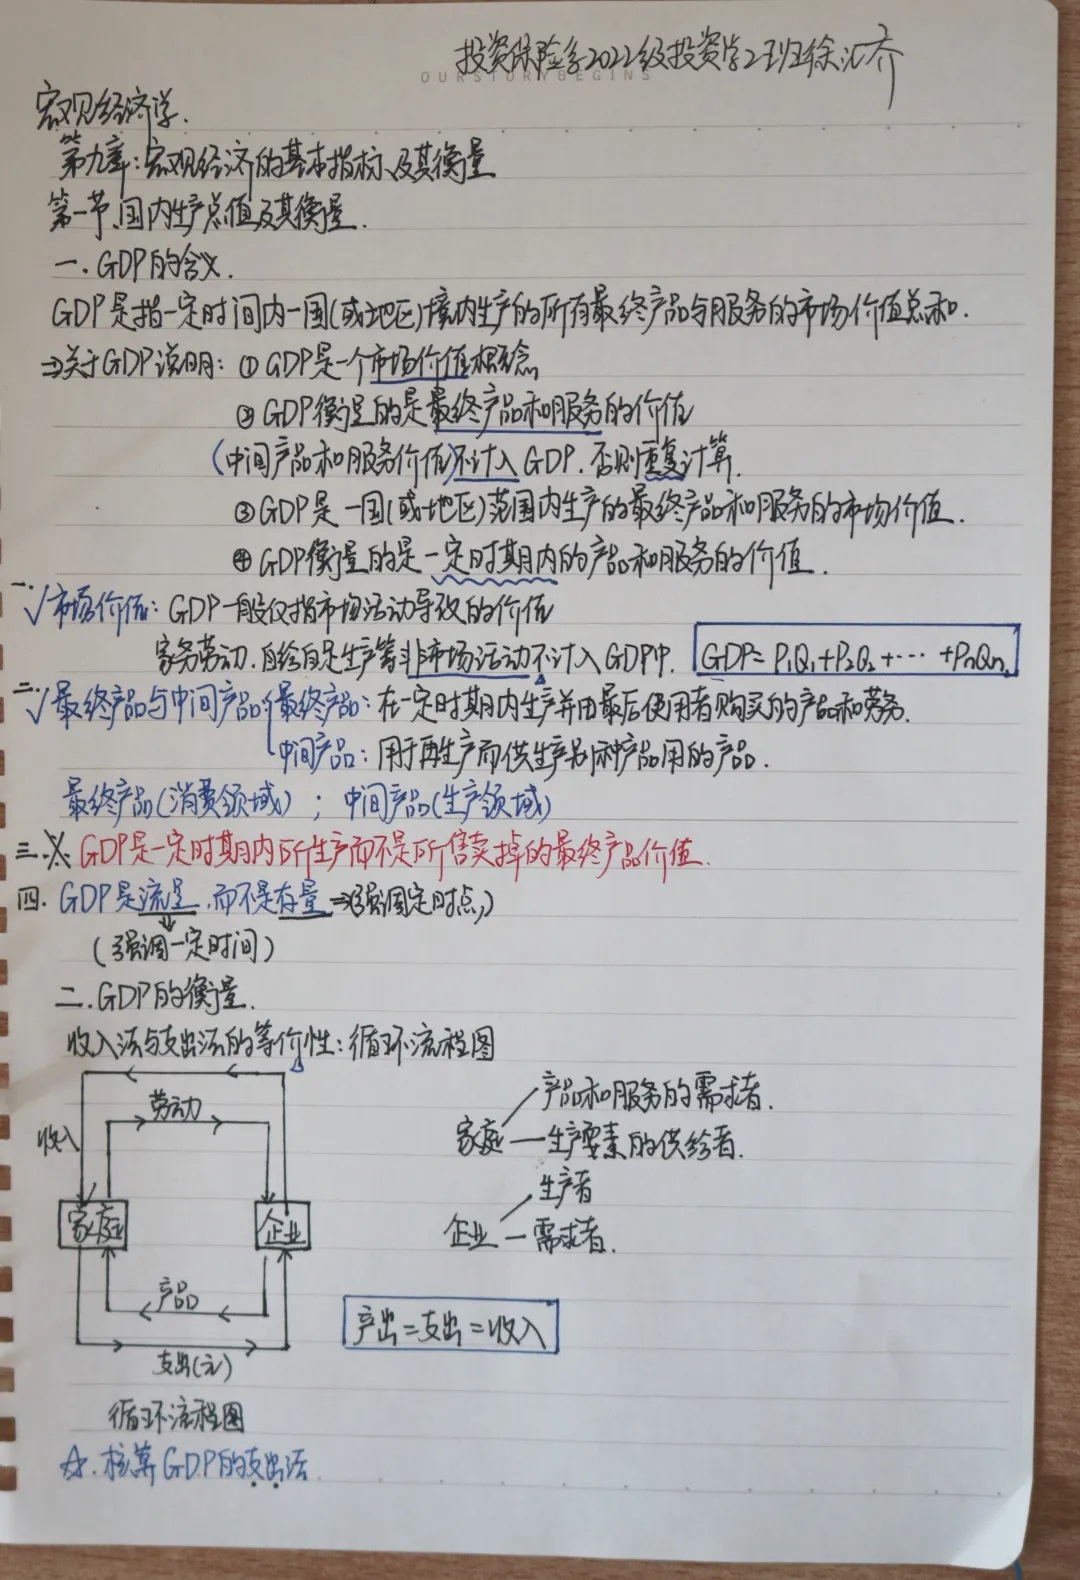 投资保险系2022级投资学2班徐汇乔
OURSTORYBEGINS
宏观经济学.
第九章:宏观经济的基本指标及其衡量
第一节.国内生产总值及其衡量.
一.GDP的含义.
GDP是指一定时间内一国(或地区)境内生产的所有最终产品与服务的市场价值总和.
⇒关于GDP说明:①GDP是一个市场价值概念
②GDP衡量的是最终产品和服务的价值
(中间产品和服务价值)不计入GDP.否则重复计算.
③GDP是一国(或地区)范围内生产的最终产品和服务的市场价值.
④GDP衡量的是一定时期内的产品和服务的价值.
一.√市场价值:GDP一般仅指市场活动导致的价值
家务劳动.自给自足生产等非市场活动不计入GDP中.
GDP=P₁Q₁+P₂Q₂+…+PnQn.
二.√最终产品与中间产品{最终产品:在一定时期内生产并由最后使用者购买的产品和劳务.
中间产品:用于再生产而供生产别种产品用的产品.
最终产品(消费领域);中间产品(生产领域)
三.※GDP是一定时期内所生产而不是所售卖掉的最终产品价值.
四.GDP是流量.而不是存量⇒(强调固定时点)
(强调一定时间)
二.GDP的衡量.
收入法与支出法的等价性:循环流程图
劳动
收入
家庭
企业
产品
支出(元)
循环流程图
产品和服务的需求者.
家庭—生产要素的供给者.
生产者
企业—需求者.
产出=支出=收入
☆.核算GDP的支出法.